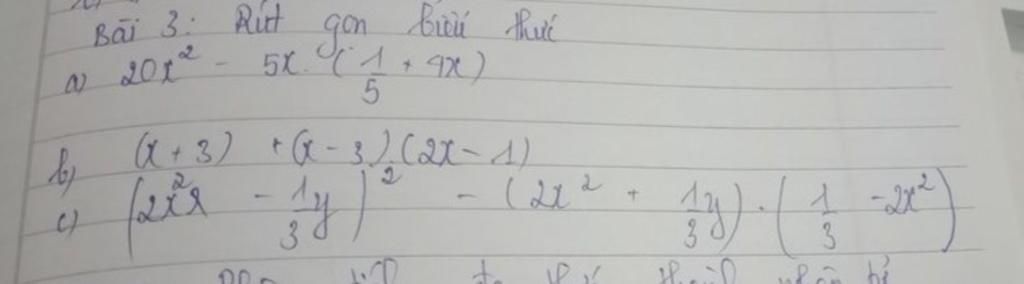 Bài 3: Rút gọn biểu thức
a) 20x² - 5x. (1/5 + 4x)
b) (x + 3) + (x - 3).(2x - 1)
c) (2x² - 1/3y)² - (2x² + 1/3y).(1/3 - 2x²)